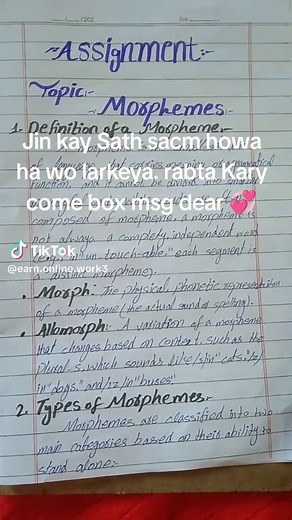 Assignment:-
Topic:-
Morphemes:-
1. Definition of a Morpheme:-
Jin kay Sath sacm howa
ha wo larkeya, rabta Kary
come box msg dear 💕
composed of morpheme, a morpheme is
not always a complete, independent word
un touch-able," each segment is
a distinct morpheme).
TikTok
@earn.online.work3
• Morph: The physical, phonetic representation
of a morpheme (the actual sound or spelling).
• Allomorph: A variation of a morpheme
that changes based on context, such as the
plural s, which sounds like /s/ in "cats", /z/
in "dogs," and /ɪz/ in "buses".
2. Types of Morphemes:-
Morphemes are classified into two
main categories based on their ability to
stand alone:-